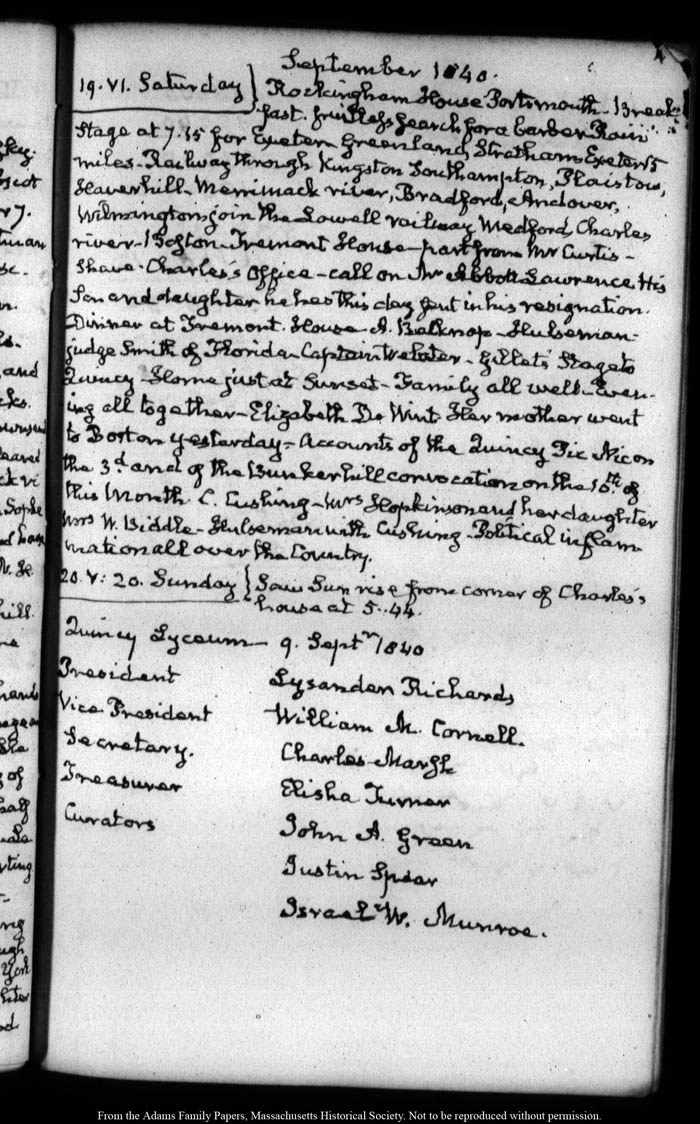 September 1840.
19. VI. Saturday } Rockingham House Portsmouth - Break-
fast. fruitless search for a barber Rain
Stage at 7.15 for Exeter Greenland, Stratham Exeter 15
miles - Railway through Kingston Southampton, Plaistow,
Haverhill - Merrimack river, Bradford, Andover,
Wilmington, join the Lowell railway Medford, Charles
river - Boston - Tremont House - part from Mr Curtis -
Shave. Charles's Office - call on Mr Abbott Lawrence His
Son and daughter he has this day sent in his resignation.
Dinner at Tremont House - A. Belknap - Hulseman -
judge Smith of Florida - Captain Webster - Gillet's Stage to
Quincy - Home just at Sunset - Family all well - Even-
ing all together - Elizabeth De Wint Her mother went
to Boston yesterday - Accounts of the Quincy Pic Nic on
the 3.d and of the Bunkerhill convocation on the 10.th of
this Month C. Cushing - Mrs Hopkinson and her daughter
Mrs W. Biddle - Hulseman with Cushing - Political inflam-
mation all over the Country.
20. V: 20. Sunday } Saw Sun rise from corner of Charles's
house at 5..44.
Quincy Lyceum - 9. Septr 1840
President Lysander Richards
Vice President William M. Cornell.
Secretary. Charles Marsh
Treasurer Elisha Turner
Curators John A. Green
Justin Spear
Israel W. Munroe.
From the Adams Family Papers, Massachusetts Historical Society. Not to be reproduced without permission.